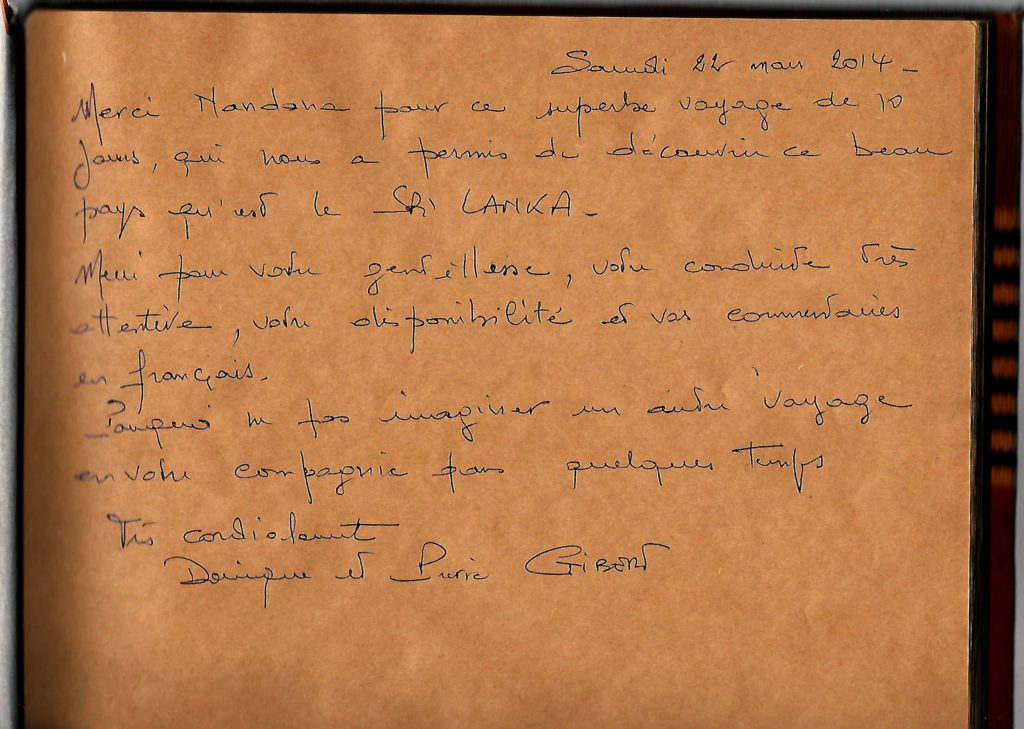 Samedi 22 mars 2014 -
Merci Nandana pour ce superbe voyage de 10
jours, qui nous a permis de découvrir ce beau
pays qu'est le SRi LANKA -
Merci pour votre gentillesse, votre conduite très
attentive, votre disponibilité et vos commentaires
en français.
Pourquoi ne pas imaginer un autre voyage
en votre compagnie dans quelques temps
Très cordialement
Dominique et Pierre GiBERT